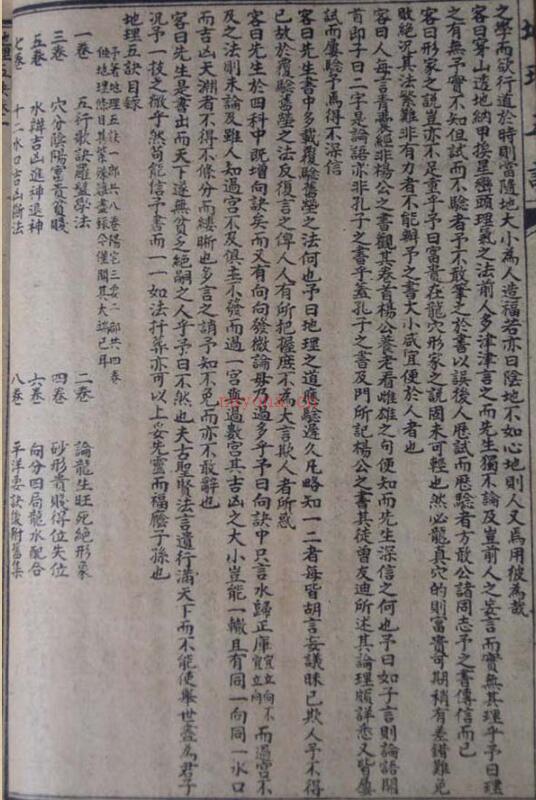 地理五訣
之學而欲行道於時則當隨地大小為人造福若亦曰陰地不如心地則人又為用彼為哉
客曰穿山透地納甲挨星巒頭理氣之法前人多津津言之而先生獨不論及豈前人之妄言而實無其理乎予曰理
之有無予實不知但試而不驗者予不敢筆之於書以誤後人歷試而歷驗者方敢公諸同志予之書傳信而已
客曰形家之說豈亦不足重乎予曰富貴在龍穴形家之說固未可輕也然必龍真穴的則富貴可期稍有差錯難免
敗絕況其法繁難非有力者不能辦予之書大小咸宜便於人者也
客曰人每言青囊經非楊公之書觀其卷首楊公養老看雌雄之句便知而先生深信之何也予曰如子言則論語開
首即子曰二字是論語亦非孔子之書乎蓋孔子之書及門所記楊公之書其徒曾友迪所述其論理頗詳悉又皆屢
試而屢驗予焉得不深信
客曰先生書中多載覆驗舊塋之法何也予曰地理之道應驗遲久凡略知一二者每皆胡言妄議昧已欺人予不得
已故於覆驗舊塋之法反復言之俾人人有所把握庶不為大言欺人者所惑
客曰先生於四科中既增向訣矣而又有向向發微論毋乃過多乎予曰向訣中只言水歸正庫宜立向宜立向不而過宮不
及之法則未論及雖人知過宮不及俱主不發而過一宮與過數宮其吉凶之大小豈能一轍且有同一向同一水口
而吉凶天淵者不得不條分而縷晰也多言之誚予知不免而亦不敢辭也
客曰先生是書出而天下遂無貧乏絕嗣之人乎予曰不然也夫古聖賢法言遺行滿天下而不能使舉世盡為君子
況予一技之微乎然苟能信予書而一一如法扦葬亦可以上妥先靈而福廕子孫也
地理五訣目錄
予著地理五訣一部共八卷陽宅三要二部共四卷
一卷　五行歌訣羅盤學法
二卷　論龍生旺死絕形象
三卷　穴分陰陽富貴貧賤
四卷　砂形貴賤得位失位
五卷　水辯吉凶進神退神
六卷　向分四局龍水配合
七卷　十二水口吉凶斷法
八卷　平洋要訣後附舊集